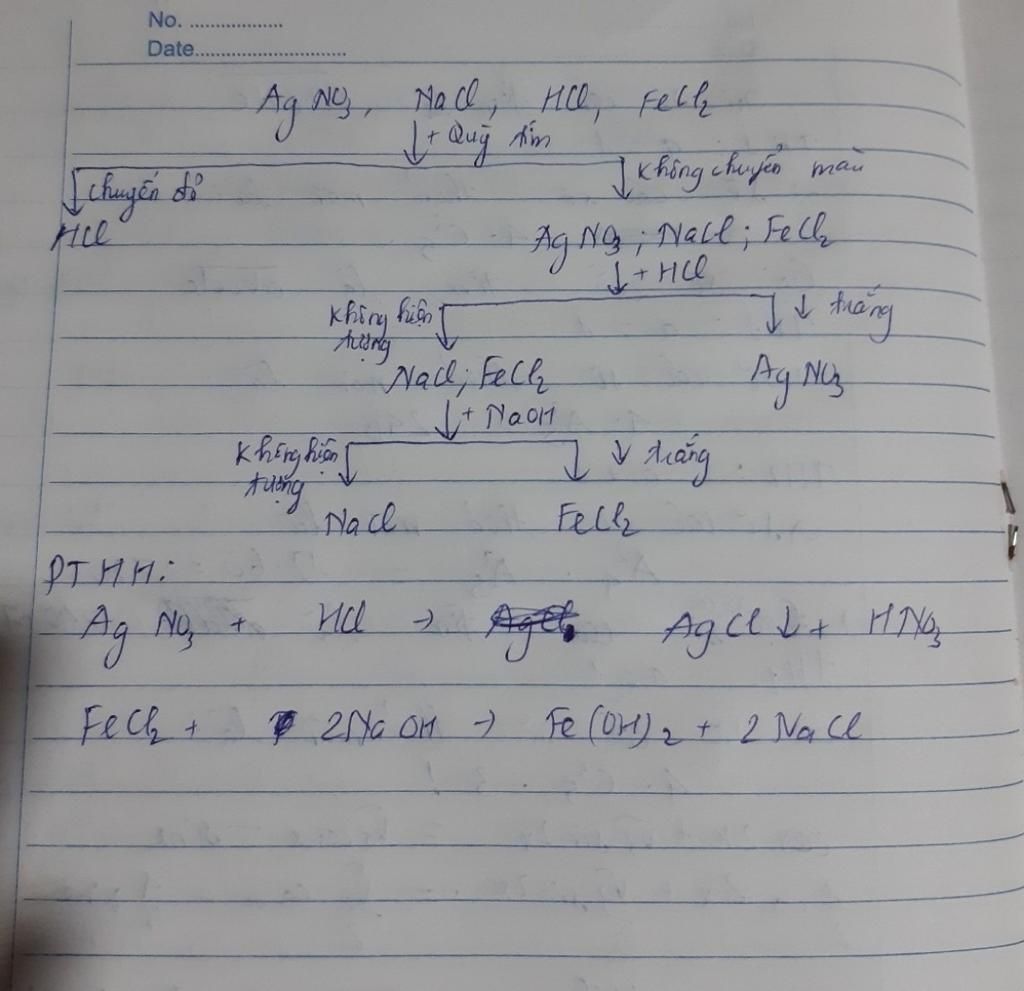 No. ..................
Date..............................
AgNO₃, NaCl; HCl, FeCl₂
↓ + Quỳ tím
chuyển đỏ không chuyển màu
HCl AgNO₃; NaCl; FeCl₂
↓ + HCl
không hiện tượng ↓ trắng
NaCl; FeCl₂ AgNO₃
↓ + NaOH
không hiện tượng ↓ trắng
NaCl FeCl₂
PTHH:
AgNO₃ + HCl → AgCl↓ + HNO₃
FeCl₂ + 2NaOH → Fe(OH)₂ + 2NaCl